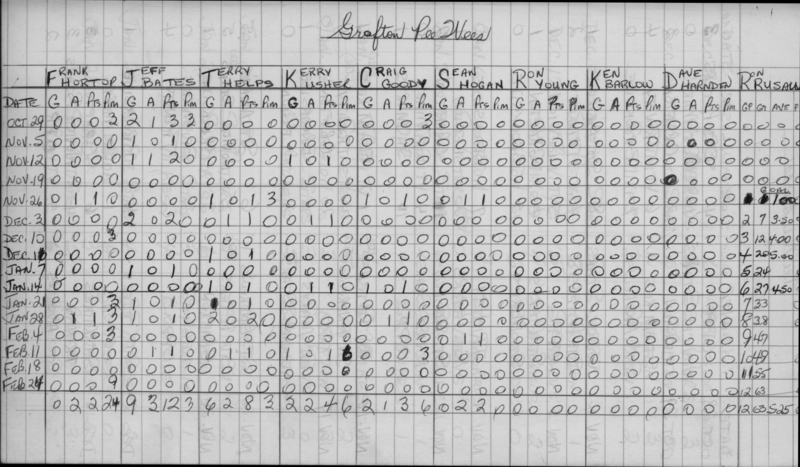 Grafton Pee Wees
FRANK HORTOP JEFF BATES TERRY HELPS KERRY LUSHER CRAIG GOODY SEAN HOGAN RON YOUNG KEN BARLOW DAVE HARNDEN RON RUSAW
DATE G A Pts Pim G A Pts Pim G A Pts Pim G A Pts Pim G A Pts Pim G A Pts Pim G A Pts Pim G A Pts Pim G A Pts Pim GP GA AVE
OCT. 29 0 0 0 3 2 1 3 3 0 0 0 0 0 0 0 3 0 0 0 0 0 0 0 0 0 0 0 0 0 0 0 0 0 0 0
NOV. 5 0 0 0 0 1 0 1 0 0 0 0 0 0 0 0 0 0 0 0 0 0 0 0 0 0 0 0 0 0 0 0 0 0 0 0
NOV. 12 0 0 0 0 1 1 2 0 0 0 0 0 1 0 1 0 0 0 0 0 0 0 0 0 0 0 0 0 0 0 0 0 0 0 0 0 0 0 0
NOV. 19 0 0 0 0 0 0 0 0 0 0 0 0 0 0 0 0 0 0 0 0 0 0 0 0 0 0 0 0 0 0 0 0 0 0 0
NOV. 26 0 1 1 0 0 0 0 0 1 0 1 3 0 0 0 0 1 0 1 0 0 1 1 0 0 0 0 0 0 0 0 0 0 0 0 0 GOAL
DEC. 3 0 0 0 0 2 0 2 0 0 1 1 0 0 1 1 0 0 0 0 0 0 0 0 0 0 0 0 0 0 0 0 0 0 0 0 0 2 7 3.50
DEC. 10 0 0 0 3 0 0 0 0 0 0 0 0 0 0 0 0 0 0 0 0 0 0 0 0 0 0 0 0 0 0 0 0 0 0 0 0 3 12 4.00
0 0 0 0 0 0 0 0 1 0 1 0 0 0 0 0 0 0 0 0 0 0 0 0 0 0 0 0 0 0 0 0 0 0 0 0 4 20 5.00
JAN. 7 0 0 0 0 1 0 1 0 0 0 0 0 0 0 0 0 0 0 0 0 0 0 0 0 0 0 0 0 0 0 0 0 0 0 0 0 5 24
JAN. 14 0 0 0 0 0 0 0 0 1 0 1 0 0 0 0 0 1 0 1 0 0 0 0 0 0 0 0 0 0 0 0 0 0 0 0 0 6 27 4.50
JAN. 21 0 0 0 3 1 0 1 0 1 0 1 0 0 0 0 0 0 0 0 0 0 0 0 0 0 0 0 0 0 0 0 0 0 0 0 0 7 33
JAN 28 0 1 1 3 1 0 1 0 2 0 2 0 0 0 0 0 0 1 1 0 0 0 0 0 0 0 0 0 0 0 0 0 0 0 0 0 8 38
FEB. 4 0 0 0 3 0 0 0 0 0 0 0 0 0 0 0 0 0 0 0 0 0 1 1 0 0 0 0 0 0 0 0 0 0 0 0 0 9 47
FEB. 11 0 0 0 0 0 1 1 0 0 1 1 0 1 0 1 6 0 0 0 3 0 0 0 0 0 0 0 0 0 0 0 0 0 0 0 0 10 49
FEB. 18 0 0 0 0 0 0 0 0 0 0 0 0 0 0 0 0 0 0 0 0 0 0 0 0 0 0 0 0 0 0 0 0 0 0 0 0 11 55
FEB 24 0 0 0 9 0 0 0 0 0 0 0 0 0 0 0 0 0 0 0 0 0 0 0 0 0 0 0 0 0 0 0 0 0 0 0 0 12 63
0 2 2 24 9 3 12 3 6 2 8 3 2 2 4 6 2 1 3 6 0 2 2 0 0 0 0 0 0 0 0 0 0 0 0 0 12 63 5.25